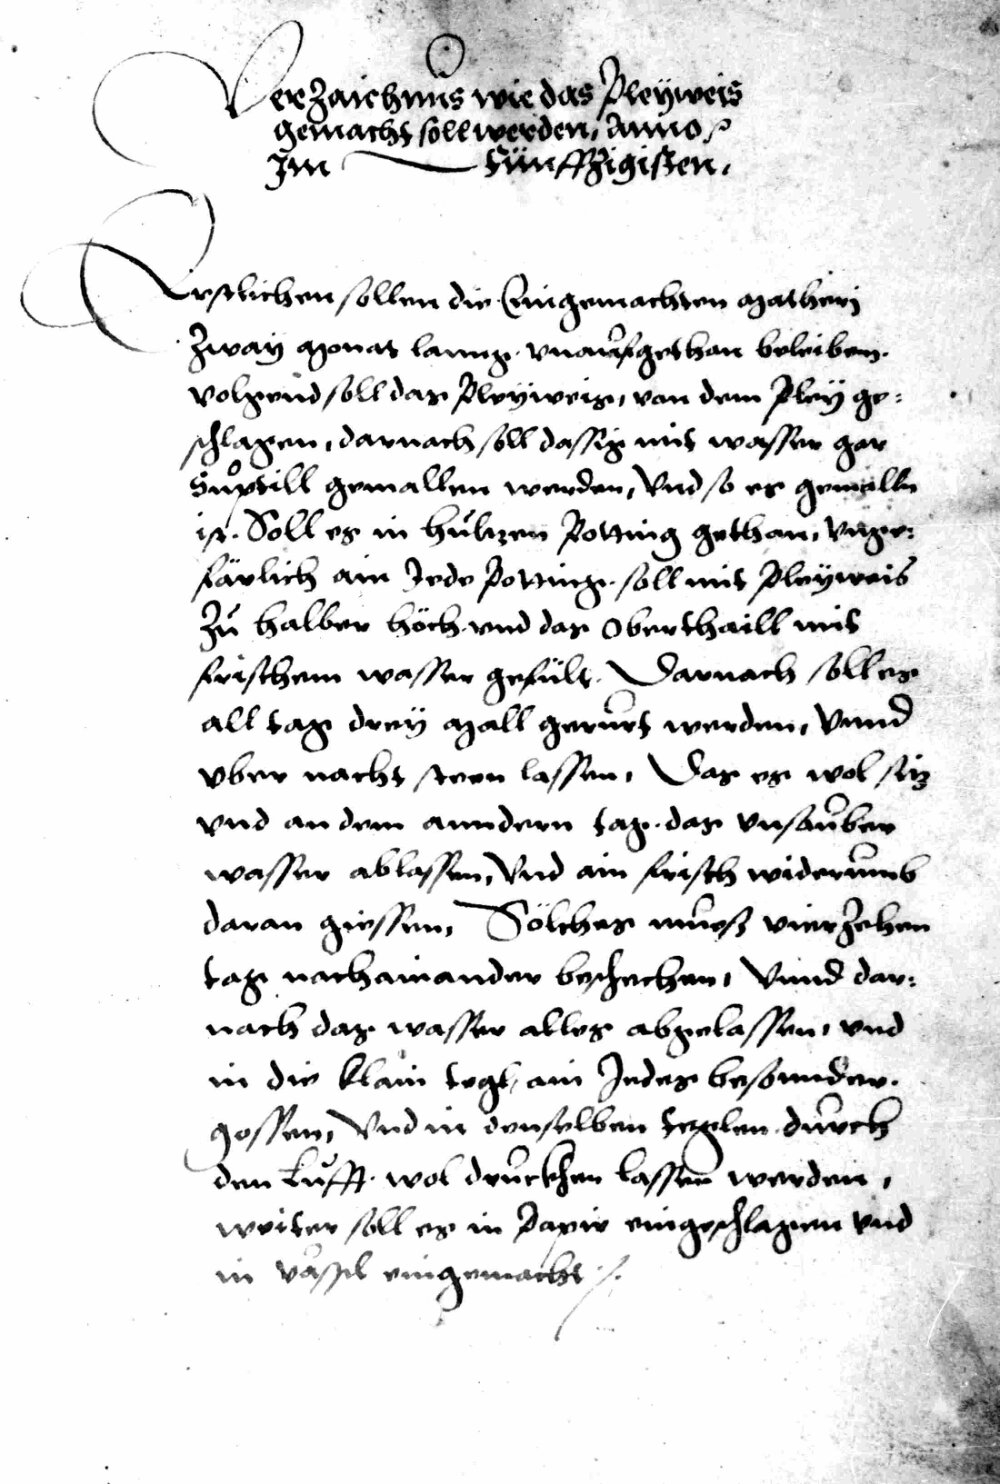 Verzaichnus wie das Pleyweis
gemacht soll werden, Anno
Im Fünffzigisten.
Erstlichen sollen die Eingemachten Matheri
Zway Monat lanng vnaufgethan beleiben.
volgend soll das Pleyweis, von dem Pley ge=
schlagen, darnach soll dassig mit wasser gar
Suptill gemallen werden, Vnd so es gemalln
ist. Soll es in hültzen Potting gethan, vnge=
färlich ain Jede Potting soll mit Pleyweis
Zu halber höch vnd das Oberthaill mit
frischem wasser gefült. Darnach soll es
all tag drey Mall gerürt werden, Vnnd
vber nacht steen lassen, Das es wol sitz
vnd an dem anndern tag das vnsauber
wasser ablassen, Vnd ain frisch widerumb
daran giessen, Sölches muesz vierzehen
tag nachainander beschechen, Vnnd dar=
nach das wasser alles abgelassen, vnd
in die klain tegl, ain Jedes besonnder
gossen, Vnd in denselben teglen durch
den Lufft wol druckhen lassen werden,
weiter soll es in Papir eingeschlagen vnd
in väsßl eingemacht